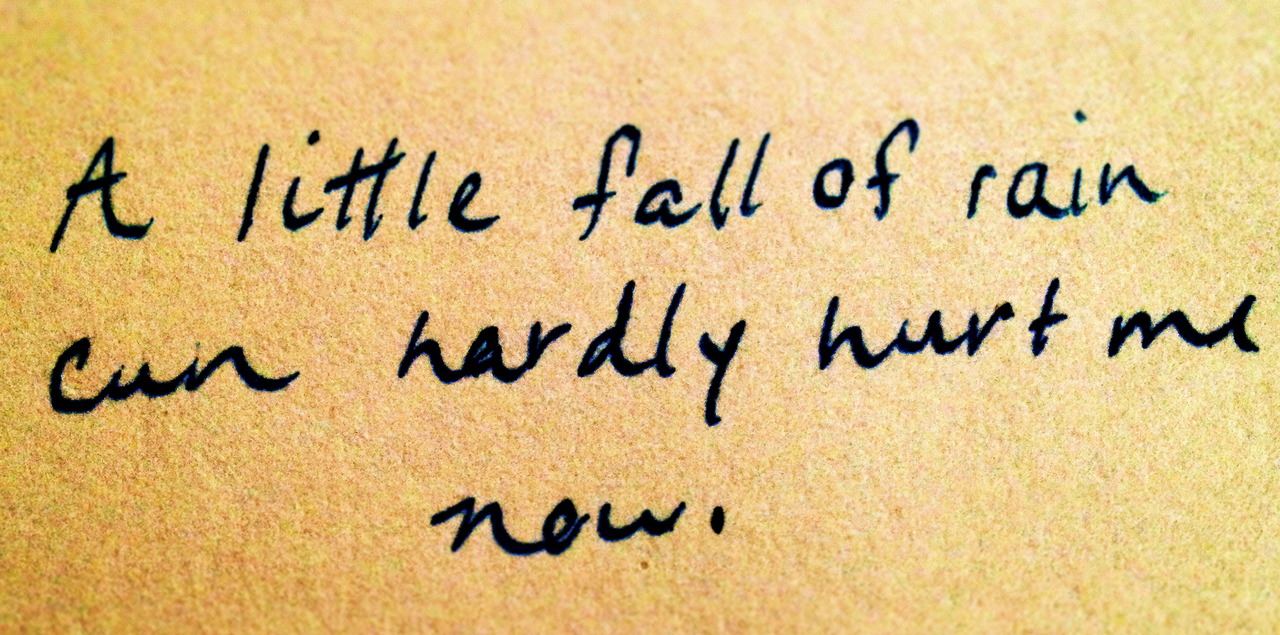 A little fall of rain
can hardly hurt me
now.